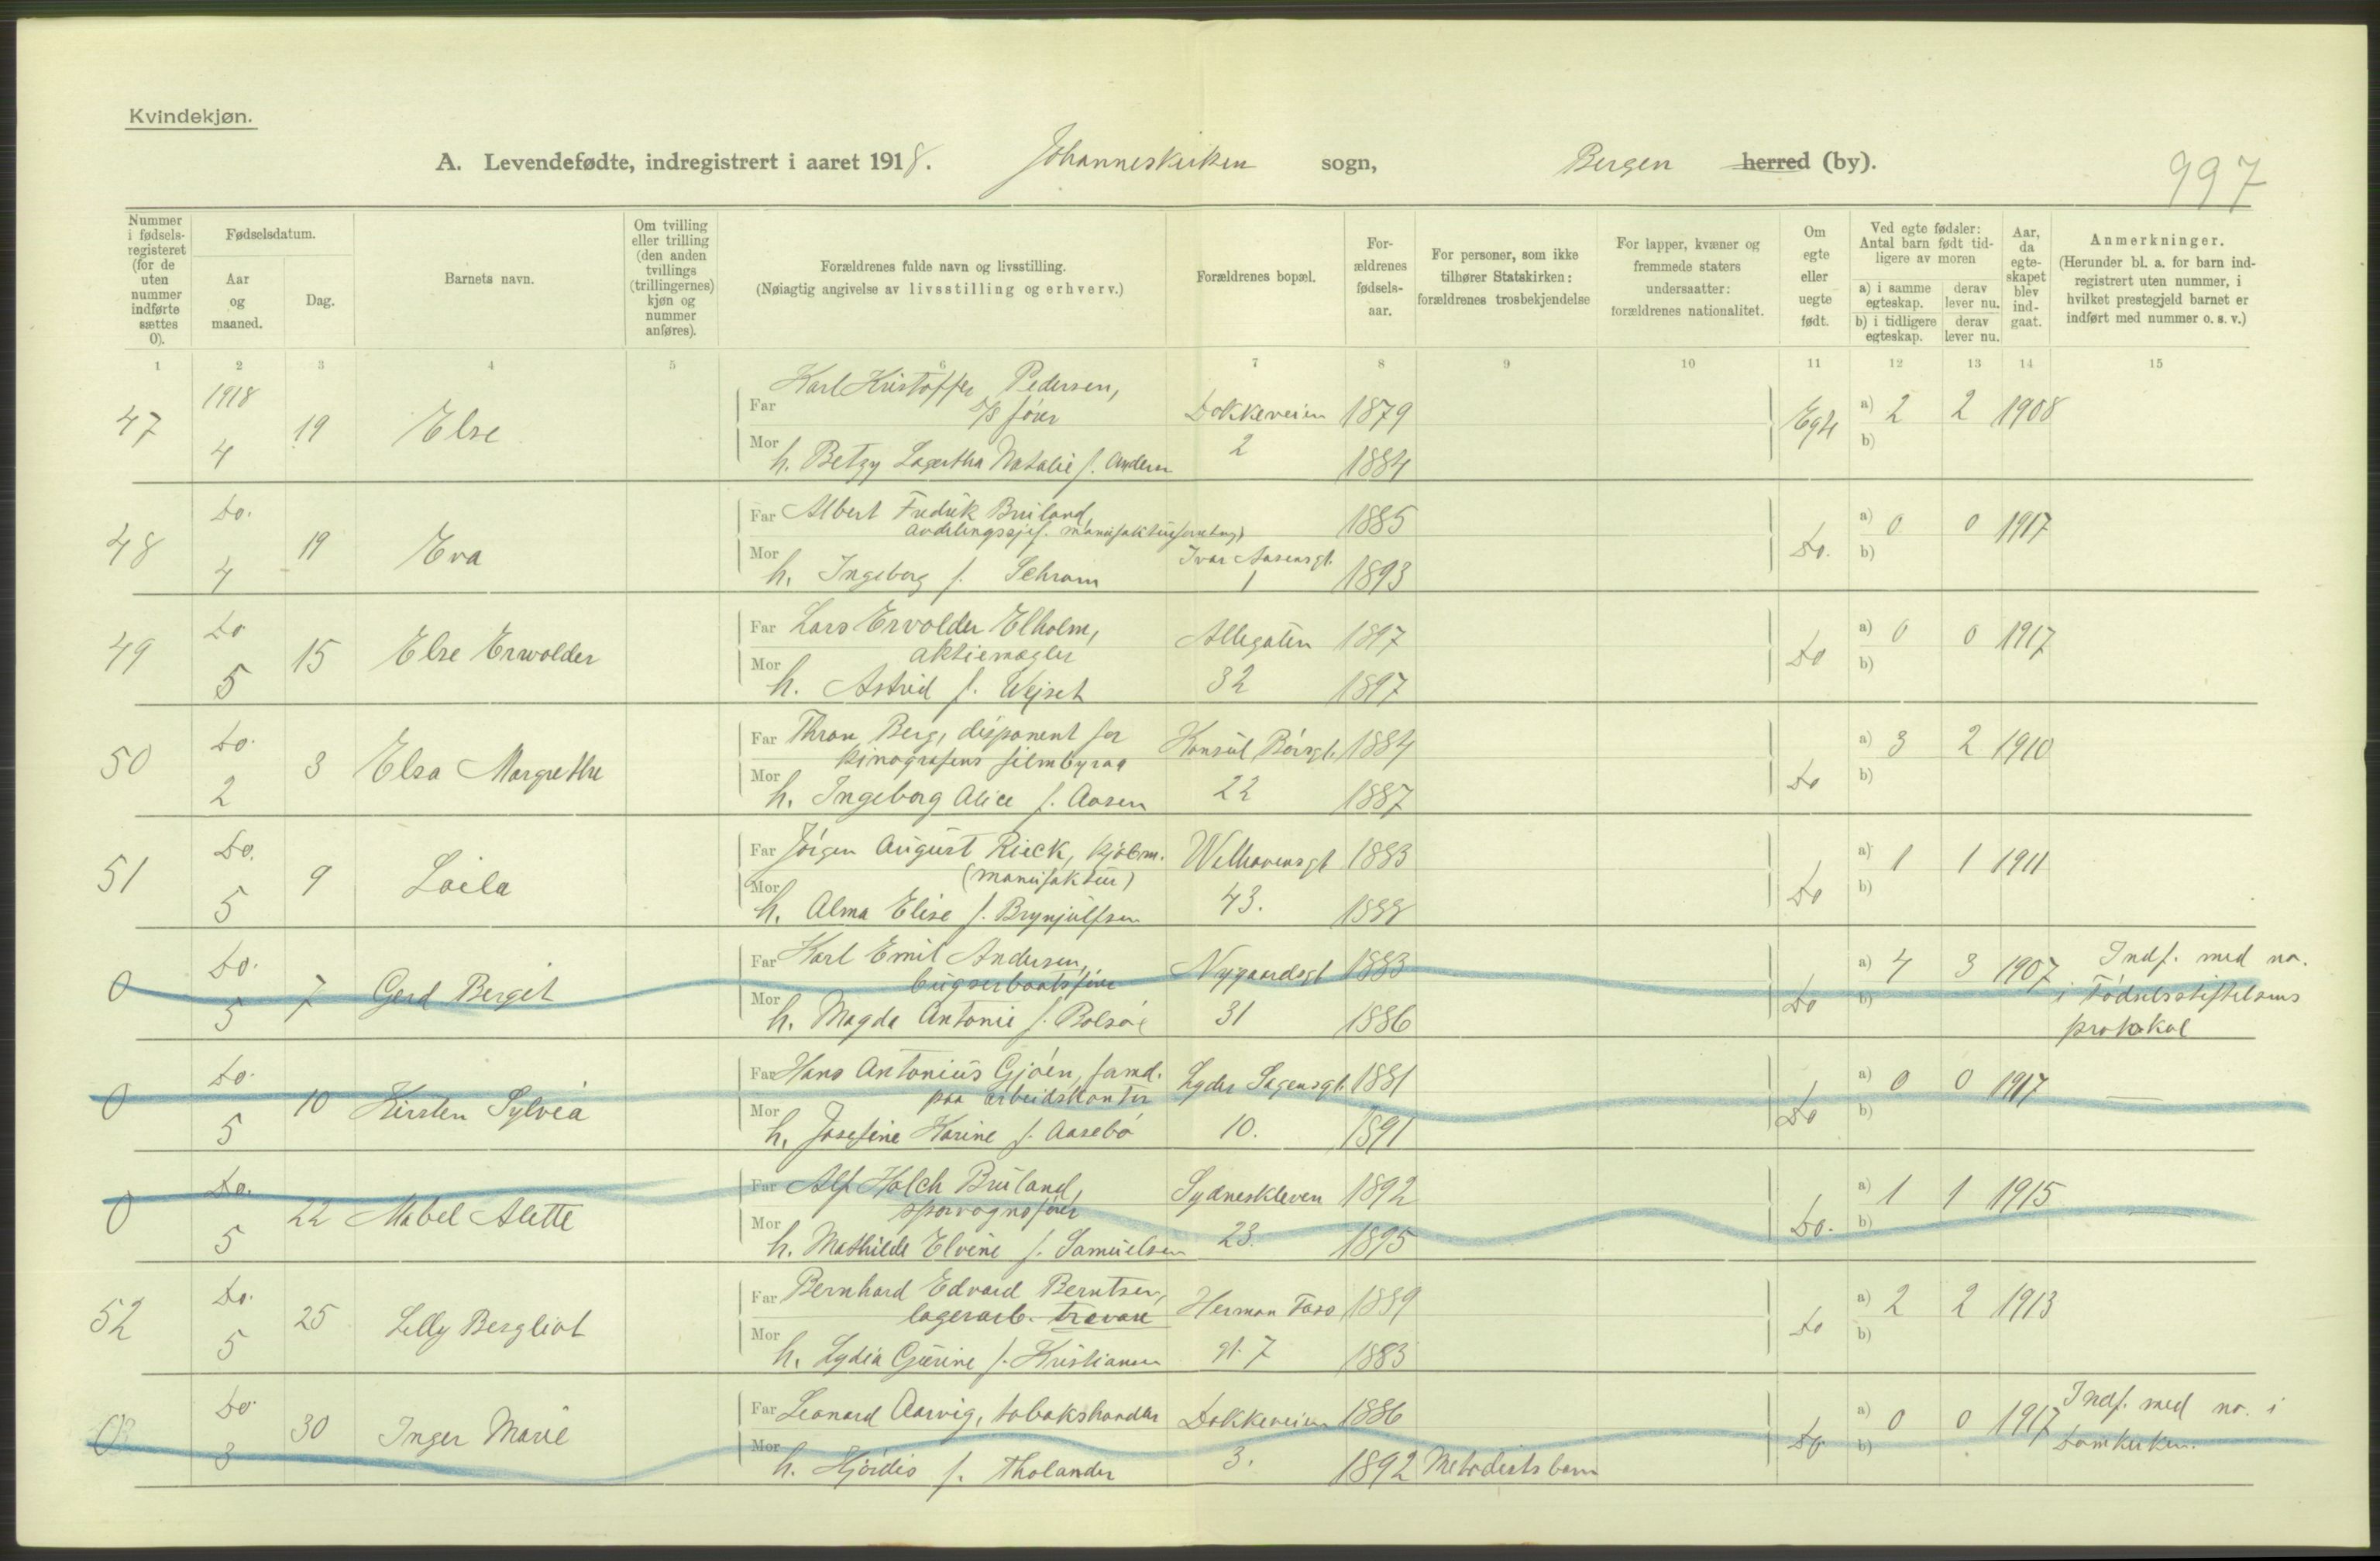 Kvindekjøn.
A. Levendefødte, indregistrert i aaret 1918. Johanneskirken sogn, Bergen herred (by).
997
Nummer i fødsels-registeret (for de uten nummer indførte sættes 0).
Fødselsdatum.
Aar og maaned.
Dag.
Barnets navn.
Om tvilling eller trilling (den anden tvillings (trillingernes) kjøn og nummer anføres).
Forældrenes fulde navn og livsstilling.
(Nøiagtig angivelse av livsstilling og erhverv.)
Forældrenes bopæl.
For-ældrenes fødsels-aar.
For personer, som ikke tilhører Statskirken: forældrenes trosbekjendelse
For lapper, kvæner og fremmede staters undersaatter: forældrenes nationalitet.
Om egte eller uegte født.
Ved egte fødsler: Antal barn født tid-ligere av moren
a) i samme egteskap.
derav lever nu.
b) i tidligere egteskap.
derav lever nu.
Aar, da egte-skapet blev ind-gaat.
Anmerkninger.
(Herunder bl. a. for barn ind-registrert uten nummer, i hvilket prestegjeld barnet er indført med nummer o. s. v.)
1 2 3 4 5 6 7 8 9 10 11 12 13 14 15
47 1918 4 19 Else
Far Karl Kristoffer Pedersen,
D/S fører
Dokkeveien 2 1879
Mor h. Betzy Lagertha Natalie f. Andersen 1884
Egte a) 2 2 1908
b)
48 Do. 4 19 Eva
Far Albert Fredrik Bruland,
avdelingssjef. manufakturforretng)
1885
Mor h. Ingeborg f. Schram
Ivar Aasensgt. 1 1893
Do. a) 0 0 1917
b)
49 Do 5 15 Else Erwolder
Far Lars Ervolder Elholm,
aktiemægler
Allegaten 32 1897
Mor h. Astrid f. Wejset 1897
Do a) 0 0 1917
b)
50 Do. 2 3 Elsa Margrethe
Far Thron Berg, disponent for
kinografens filmbyraa
Konsul Børsgt. 22 1884
Mor h. Ingeborg Alice f. Aasen 1887
Do a) 3 2 1910
b)
51 Do. 5 9 Laila
Far Jørgen August Rieck, kjøbm.
(manufaktur)
Welhavensgt 43. 1883
Mor h. Alma Elise f. Brynjulfsen 1888
Do a) 1 1 1911
b)
0 Do. 5 7 Gerd Berget
Far Karl Emil Andersen,
bugserbaatsfører
Nygaardsgt 31 1883
Mor h. Magda Antonie f. Bolsøe 1886
Do a) 4 3 1907
b)
Indf. med no.
i Fødselsstiftelsens
protokol
0 Do. 5 10 Kirsten Sylvia
Far Hans Antonius Gjøen, formd.
paa arbeidskontor
Lyder Sagensgt. 10. 1881
Mor h. Josefine Karine f. Aasebø 1891
Do a) 0 0 1917
b)
0 Do. 5 22 Mabel Alette
Far Alf Holck Bruland,
sporvognsfører
Sydneskleven 23. 1892
Mor h. Mathilde Elvine f. Samuelsen 1895
Do. a) 1 1 1915
b)
52 Do. 5 25 Lelly Bergliot
Far Bernhard Edvard Berntsen,
lagerarb. travare
Herman Foss gt. 7 1889
Mor h. Lydia Gurine f. Kristiansen 1883
Do a) 2 2 1913
b)
0 Do. 3 30 Inger Marie
Far Leonard Aarvig, tobakshandler
Dokkeveien 3. 1886
Mor h. Hjørdis f. Tholander 1892 Metodistsbarn
Do a) 0 0 1917
b)
Indf. med no. i
Domkirken.